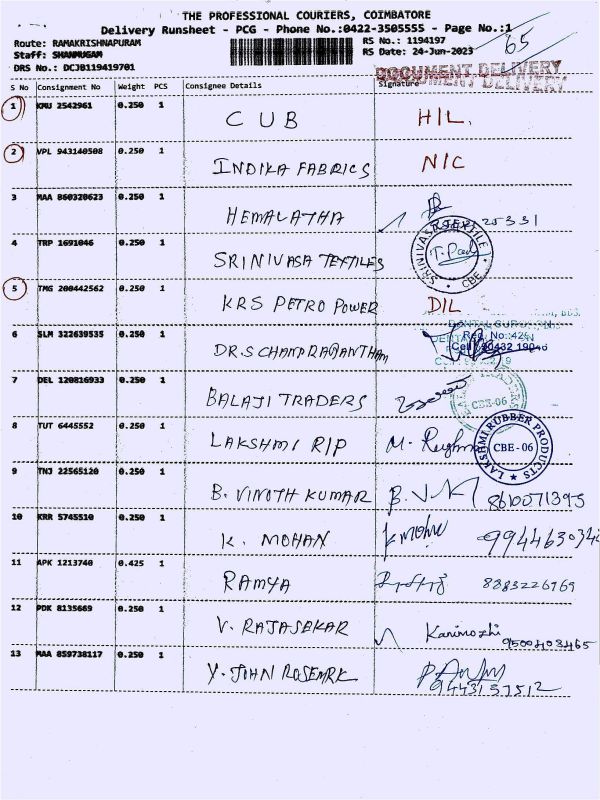 THE PROFESSIONAL COURIERS, COIMBATORE
Delivery Runsheet - PCG - Phone No.:0422-3505555 - Page No.:1
65
Route: RAMAKRISHNAPURAM RS No.: 1194197
Staff: SHANMUGAM RS Date: 24-Jun-2023
DRS No.: DCJB119419701
DOCUMENT DELIVERY
S No Consignment No Weight PCS Consignee Details Signature
1 KMU 2542961 0.250 1 CUB HIL.
2 VPL 943140508 0.250 1 INDIKA FABRICS NIC
3 MAA 860320623 0.250 1 HEMALATHA 25331
4 TRP 1691046 0.250 1 SRINIVASA TEXTILES SRINIVASA TEXTILE CBE
5 TMG 200442562 0.250 1 KRS PETRO POWER DIL
6 SLM 322639535 0.250 1 DR.S CHANDRAKANTHAM
7 DEL 120816933 0.250 1 BALAJI TRADERS CBE-06
8 TUT 6445552 0.250 1 LAKSHMI RIP LAKSHMI RUBBER PRODUCTS CBE-06
9 TNJ 22565120 0.250 1 B. VINOTH KUMAR 8610071395
10 KRR 5745510 0.250 1 K. MOHAN K Mohan
11 APK 1213740 0.425 1 RAMYA 8883226969
12 PDK 8135669 0.250 1 V. RAJASEKAR Kanimozhi 9500803465
13 MAA 859738117 0.250 1 Y. JOHN ROSEMRK 9443157512